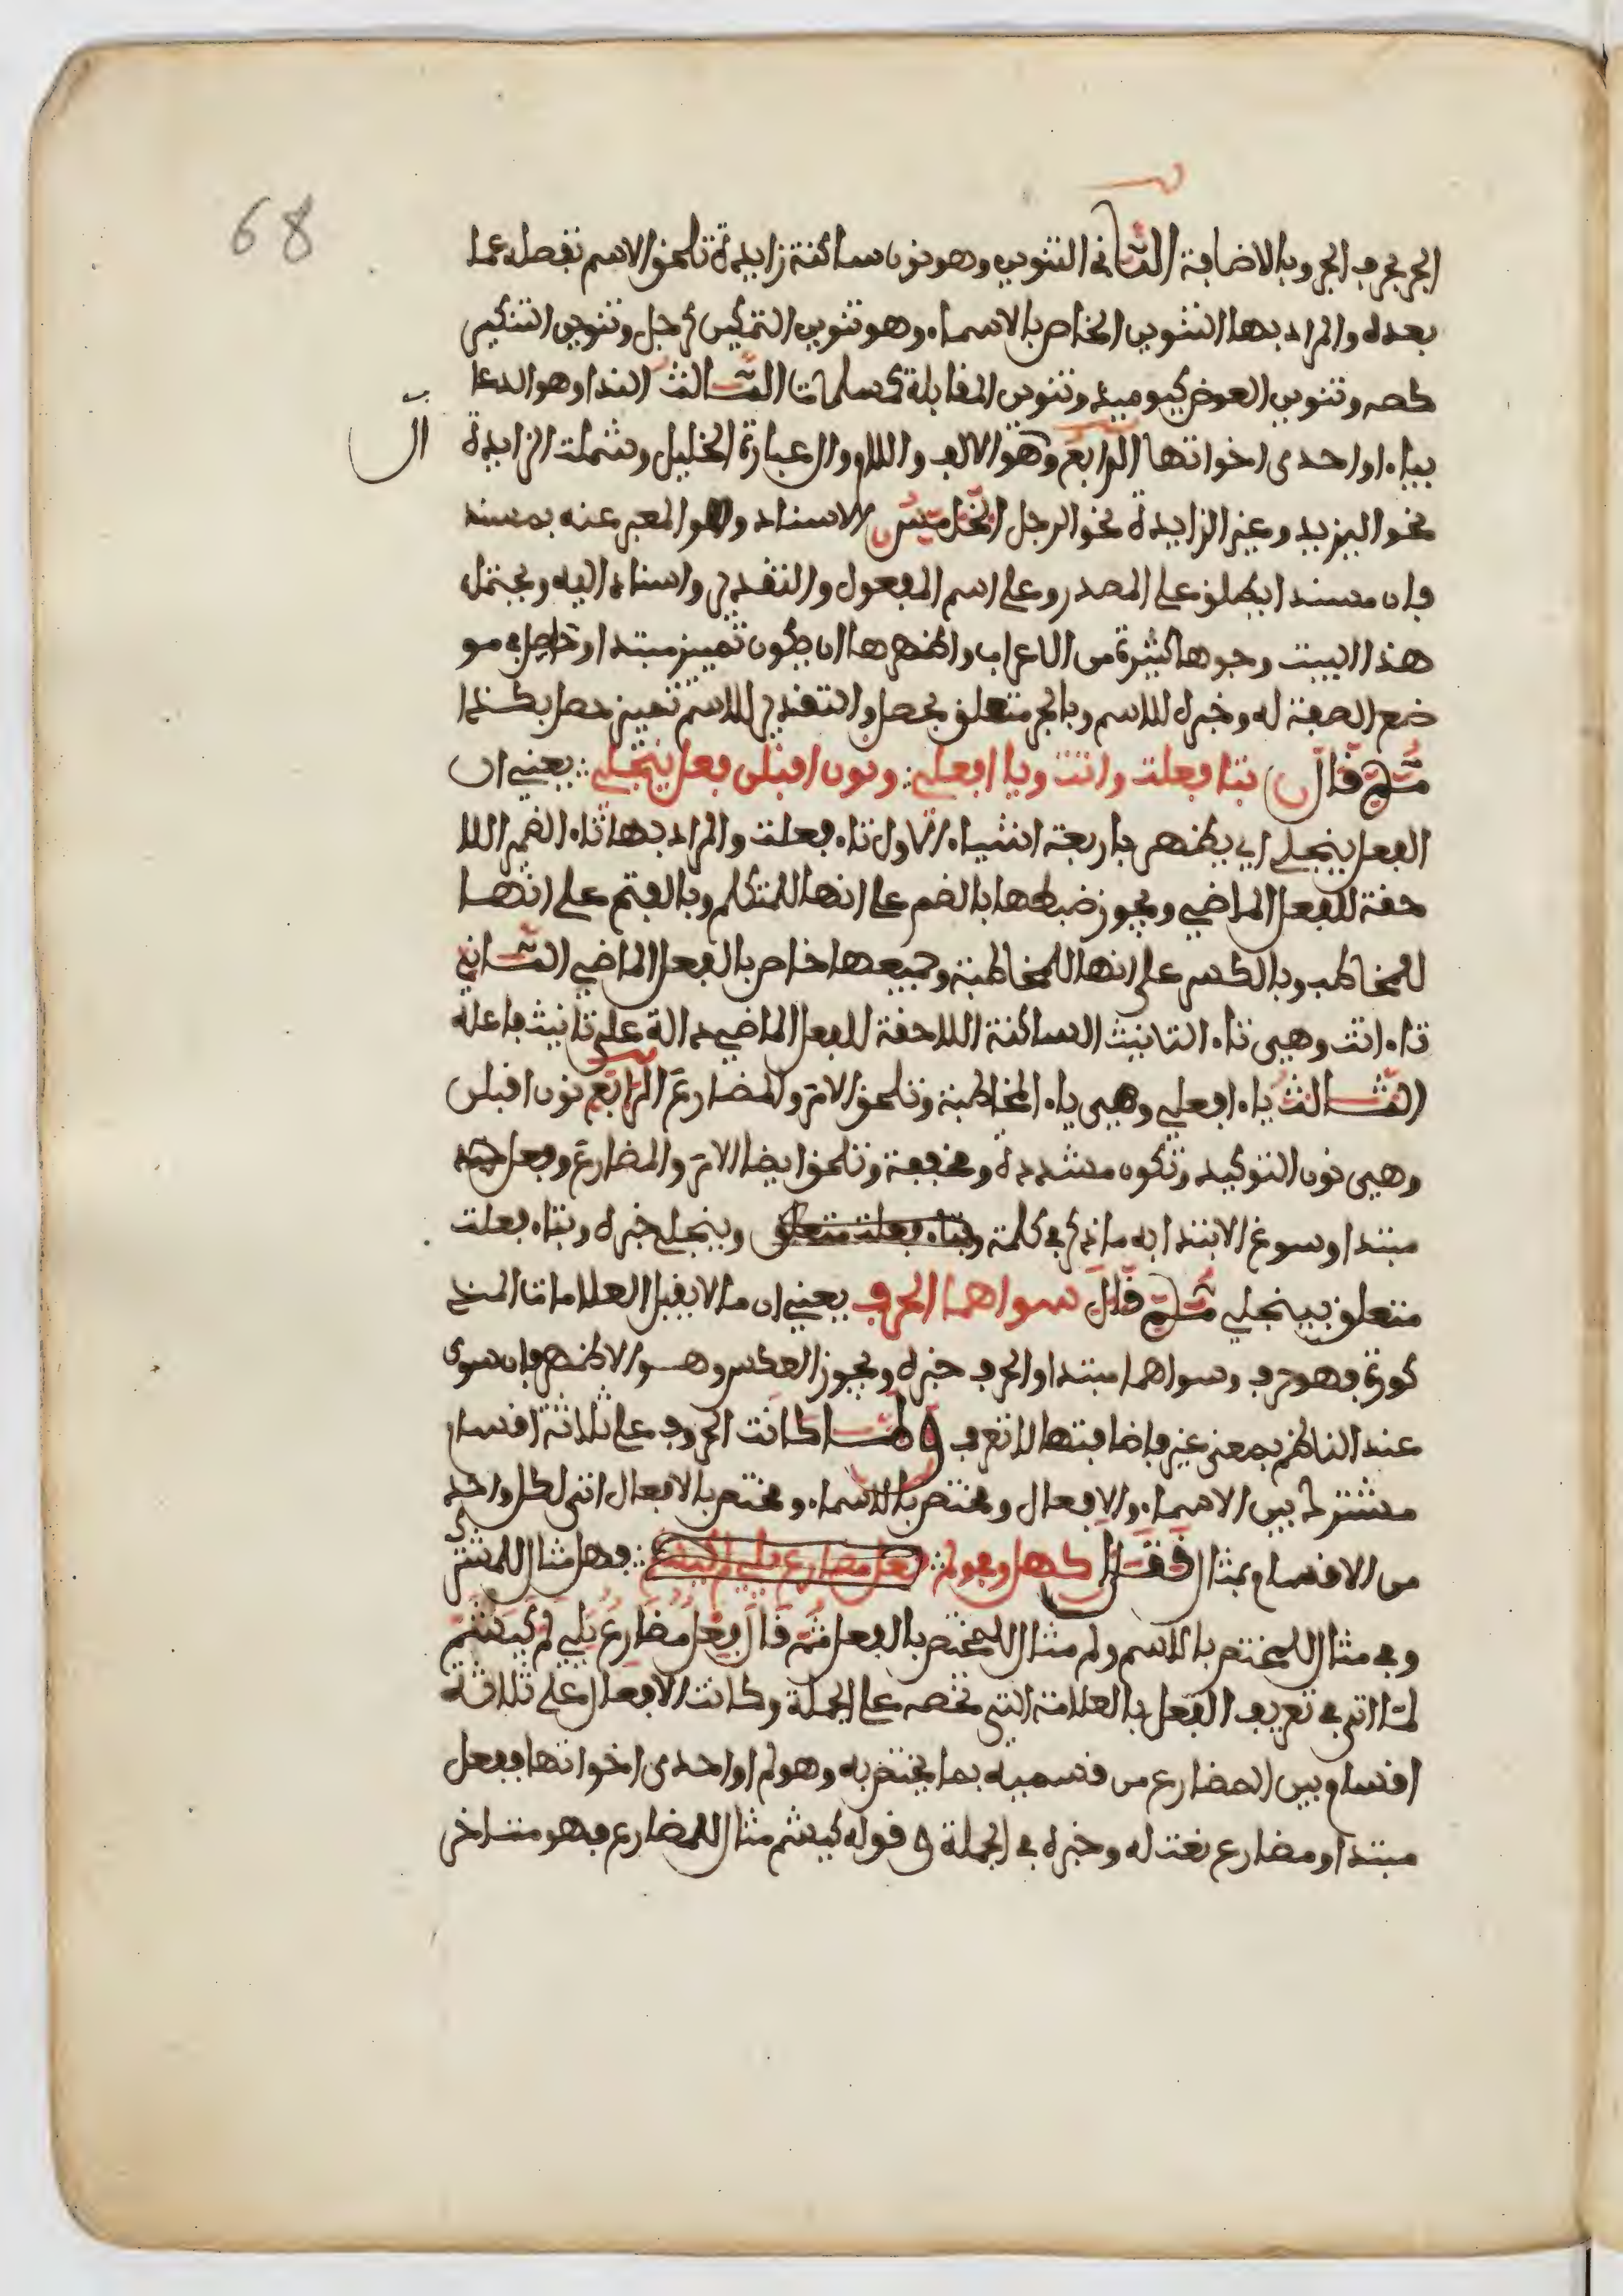 68
الجر بحرف الجر وبالاضافة الثاني التنوين وهو نون ساكنة زايدة تلحق الاسم تفصله عما
بعده والمراد بها التنوين الخاص بالاسماء وهو تنوين التمكين كرجل وتنوين التنكير
كصه وتنوين العوض كيوميذ وتنوين المقابلة كمسلمات الثالث الندا وهو الدعا
بياء او احدى اخواتها الرابع وهو الالف واللام وال عبارة الخليل وشملت الزايدة
ال
نحو اليزيد وغير الزايدة نحو الرجل الخامس الاسناد وهو المعبر عنه بمسند
فان مسندا يطلق على المصدر وعلى اسم المفعول والتقدير واسناد اليه ويحتمل
هذا البيت وجوها كثيرة من الاعراب واظهرها ان يكون تمييز مبتدا وحاصل في مو
ضع الصفة له وخبره للاسم وبالجر متعلق بحصل والتقدير للاسم تمييز حصل بكذا
ثم قال بتا فعلت واتت ويا افعلي ونون اقبلن فعل ينجلي يعني ان
الفعل ينجلي اي يظهر باربعة اشياء الاول تاء فعلت والمراد بها تاء الضمير اللا
حقة للفعل الماضي ويجوز ضبطها بالضم على انها للمتكلم وبالفتح على انها
للمخاطب وبالكسر على انها للمخاطبة وجميعها خاص بالفعل الماضي الثاني
تاء اتت وهي تاء التانيث الساكنة اللاحقة للفعل الماضي دالة على تانيث فاعله
الثالث ياء افعلي وهي ياء المخاطبة وتلحق الامر والمضارع الرابع نون اقبلن
وهي نون التوكيد وتكون مشددة ومخففة وتلحق ايضا الامر والمضارع وفعل
مبتدا وسوغ الابتدا به ما ذكر في كلمة وبتاء فعلت متعلق وينجلي خبره وبتاء فعلت
متعلق بينجلي ثم قال سواهما الحرف يعني ان ما لا يقبل العلامات المذ
كورة فهو حرف وسواهما مبتدا والحرف خبره ويجوز العكس وهو الاظهر فان سوى
عند الناظم بمعنى غير فاضافتها لا تعرف ولما كانت الحروف على ثلاثة اقسام
مشترك بين الاسماء والافعال ومختص بالاسماء ومختص بالافعال اتى لكل واحد
من الاقسام بمثال فقال كهل وفي ولم فعل مضارع يلي لم كيشم فهل مثال للمشترك
وفي مثال للمختص بالاسم ولم مثال للمختص بالفعل ثم قال فعل مضارع يلي لم كيشم
لما اتى في تعريف الفعل بالعلامة التي تخصه على الجملة وكانت الافعال على ثلاثة
اقسام بين المضارع من قسميه بما يختص به وهو لم او احدى اخواتها ففعل
مبتدا ومضارع نعت له وخبره في الجملة في قوله كيشم مثال للمضارع فهو متاخر